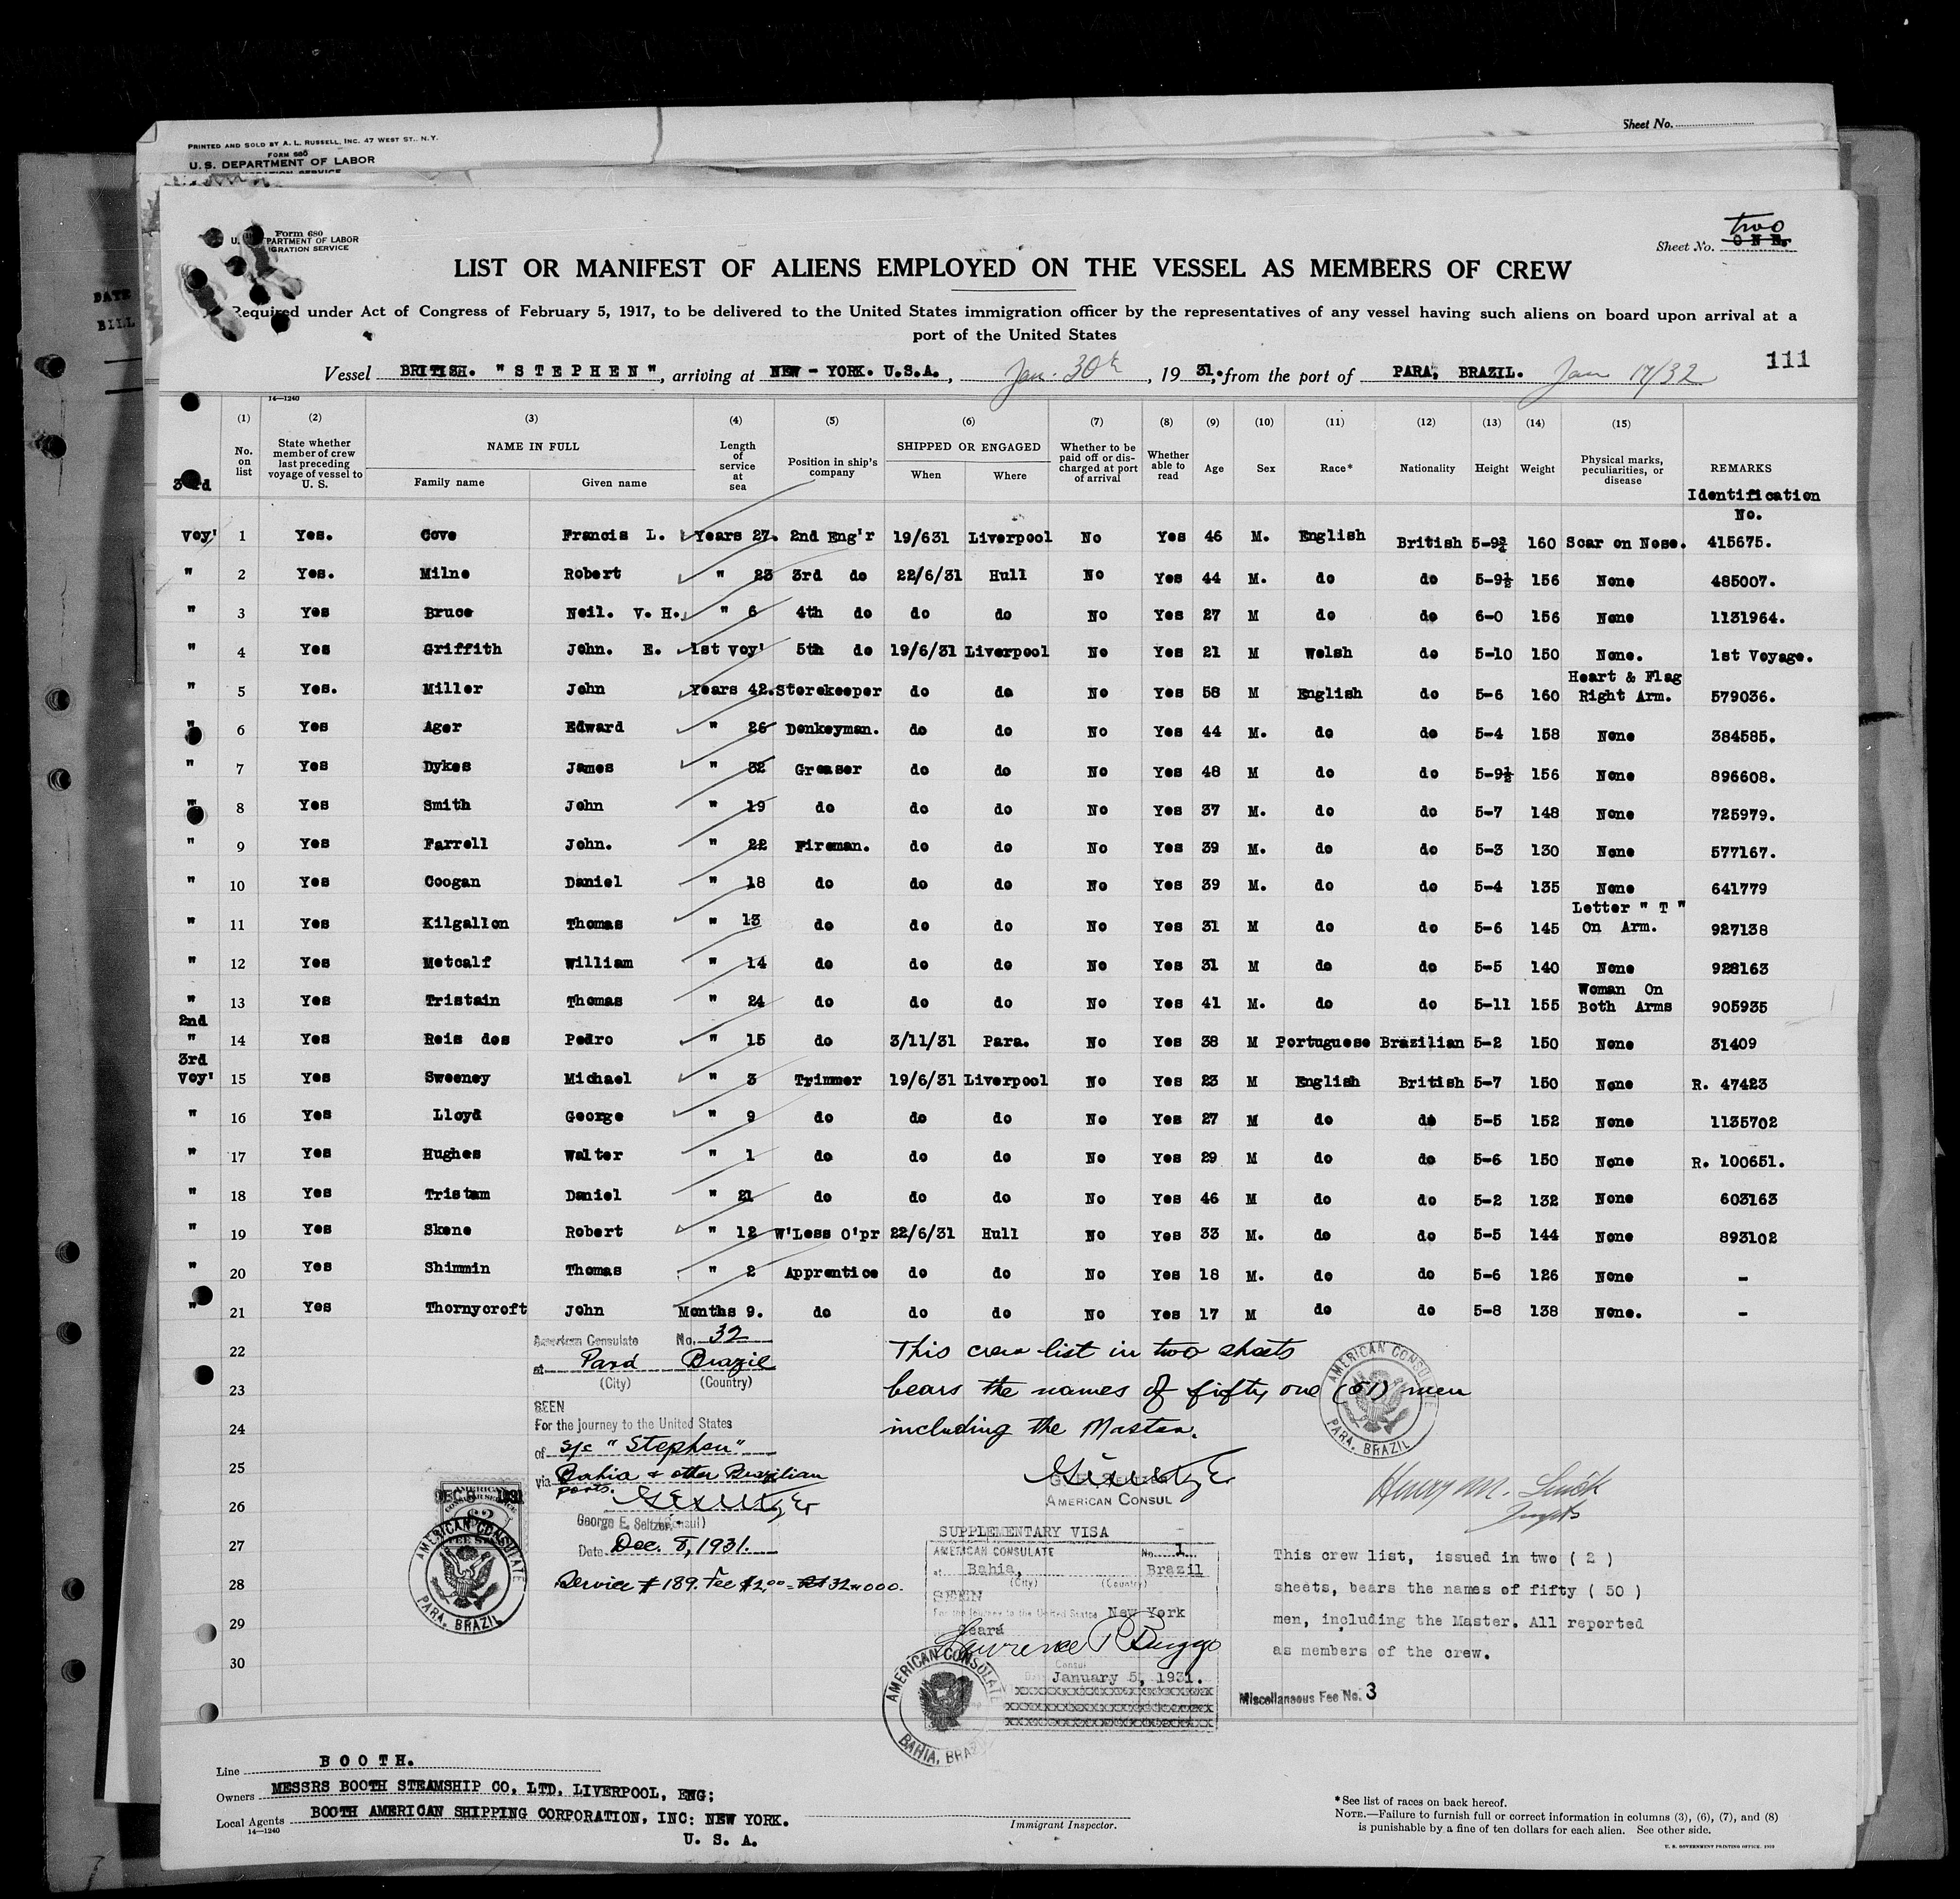 Sheet No.
PRINTED AND SOLD BY A. L. RUSSELL, INC. 47 WEST ST., N.Y.
FORM 680
U. S. DEPARTMENT OF LABOR
DATE
BILL
Form 680
U. DEPARTMENT OF LABOR
IGRATION SERVICE
two
Sheet No. ONE.
LIST OR MANIFEST OF ALIENS EMPLOYED ON THE VESSEL AS MEMBERS OF CREW
Required under Act of Congress of February 5, 1917, to be delivered to the United States immigration officer by the representatives of any vessel having such aliens on board upon arrival at a
port of the United States
Vessel BRITISH. "STEPHEN", arriving at NEW - YORK. U.S.A., Jan. 30th, 19 31. from the port of PARA, BRAZIL. Jan 17/32
111
14—1240
(1) (2) (3) (4) (5) (6) (7) (8) (9) (10) (11) (12) (13) (14) (15)
No. on list State whether member of crew last preceding voyage of vessel to U. S. NAME IN FULL Family name Given name Length of service at sea Position in ship's company SHIPPED OR ENGAGED When Where Whether to be paid off or discharged at port of arrival Whether able to read Age Sex Race* Nationality Height Weight Physical marks, peculiarities, or disease REMARKS
Identification
No.
3rd
voy' 1 Yes. Cove Francis L. Years 27. 2nd Eng'r 19/631 Liverpool No Yes 46 M. English British 5-9¾ 160 Scar on Nose. 415675.
" 2 Yes. Milne Robert " 23 3rd do 22/6/31 Hull No Yes 44 M. do do 5-9½ 156 None 485007.
" 3 Yes Bruce Neil. V. H. " 6 4th do do do No Yes 27 M do do 6-0 156 None 1131964.
" 4 Yes Griffith John. E. 1st voy' 5th do 19/6/31 Liverpool No Yes 21 M Welsh do 5-10 150 None. 1st Voyage.
" 5 Yes. Miller John Years 42. Storekeeper do do No Yes 58 M English do 5-6 160 Heart & Flag Right Arm. 579036.
" 6 Yes Ager Edward " 26 Donkeyman. do do No Yes 44 M. do do 5-4 158 None 384585.
" 7 Yes Dykes James " 32 Greaser do do No Yes 48 M do do 5-9½ 156 None 896608.
" 8 Yes Smith John " 19 do do do No Yes 37 M. do do 5-7 148 None 725979.
" 9 Yes Farrell John. " 22 Fireman. do do No Yes 39 M. do do 5-3 130 None 577167.
" 10 Yes Coogan Daniel " 18 do do do No Yes 39 M. do do 5-4 135 None 641779
" 11 Yes Kilgallon Thomas " 13 do do do No Yes 31 M do do 5-6 145 Letter " T " On Arm. 927138
" 12 Yes Metcalf William " 14 do do do No Yes 31 M do do 5-5 140 None 928163
" 13 Yes Tristain Thomas " 24 do do do No Yes 41 M. do do 5-11 155 Woman On Both Arms 905935
2nd
" 14 Yes Reis des Pedro " 15 do 3/11/31 Para. No Yes 38 M Portuguese Brazilian 5-2 150 None 31409
3rd
Voy' 15 Yes Sweeney Michael " 3 Trimmer 19/6/31 Liverpool No Yes 23 M English British 5-7 150 None R. 47423
" 16 Yes Lloyd George " 9 do do do No Yes 27 M do do 5-5 152 None 1135702
" 17 Yes Hughes Walter " 1 do do do No Yes 29 M do do 5-6 150 None R. 100651.
" 18 Yes Tristam Daniel " 21 do do do No Yes 46 M do do 5-2 132 None 603163
" 19 Yes Skene Robert " 12 W'Less O'pr 22/6/31 Hull No Yes 33 M. do do 5-5 144 None 893102
" 20 Yes Shimmin Thomas " 2 Apprentice do do No Yes 18 M. do do 5-6 126 None -
" 21 Yes Thornycroft John Months 9. do do do No Yes 17 M do do 5-8 138 None. -
22
23
24
25
26
27
28
29
30
American Consulate No. 32
at Pará Brazil
(City) (Country)
SEEN
For the journey to the United States
of S/s "Stephen"
via Bahia & other Brazilian
ports.
George E. Seltzer (Consul)
Date Dec. 8, 1931.
Service # 189. Fee $2.00 = 32$000.
DEC 8 1931
AMERICAN CONSULAR SERVICE
$2
FEE STAMP
AMERICAN CONSULATE
PARA, BRAZIL
This crew list in two sheets
bears the names of fifty one (51) men
including the Master.
G. E. SELTZER
AMERICAN CONSUL
AMERICAN CONSULATE
PARA, BRAZIL
Henry M.
SUPPLEMENTARY VISA
AMERICAN CONSULATE No. 1
at Bahia, Brazil
(City) (Country)
SEEN
For the journey to the United States New York
Ceará
Lawrence P Briggs
Consul
Date January 5, 1931.
XXXXXXXXXXXXXXXXXXXXXXXX
XXXXXXXXXXXXXXXXXXXXXXXX
XXXXXXXXXXXXXXXXXXXXXXXX
AMERICAN CONSULATE
BAHIA, BRAZIL
This crew list, issued in two ( 2 )
sheets, bears the names of fifty ( 50 )
men, including the Master. All reported
as members of the crew.
Miscellaneous Fee No. 3
Line BOOTH.
Owners MESSRS BOOTH STEAMSHIP CO, LTD, LIVERPOOL, ENG;
Local Agents BOOTH AMERICAN SHIPPING CORPORATION, INC: NEW YORK.
U. S. A.
14—1240
Immigrant Inspector.
*See list of races on back hereof.
NOTE.—Failure to furnish full or correct information in columns (3), (6), (7), and (8)
is punishable by a fine of ten dollars for each alien. See other side.